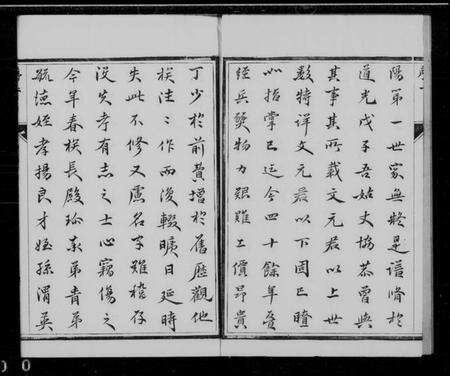 陽第一世家無疑是譜脩於
道光戊子吾姑丈協恭曾與
其事其所載文元君以上世
數特詳文元君以下固已瞭
如指掌已迄今四十餘年疊
經兵燹物力艱難工價昂貴
丁少於前費增於舊歷觀他
族往往作而復輟曠日延時
失此不修又慮名字難稽存
沒失考有志之士心竊傷之
今年春族長殿珍泰弟青弟
毓德姪孝揚良才姪孫渭英